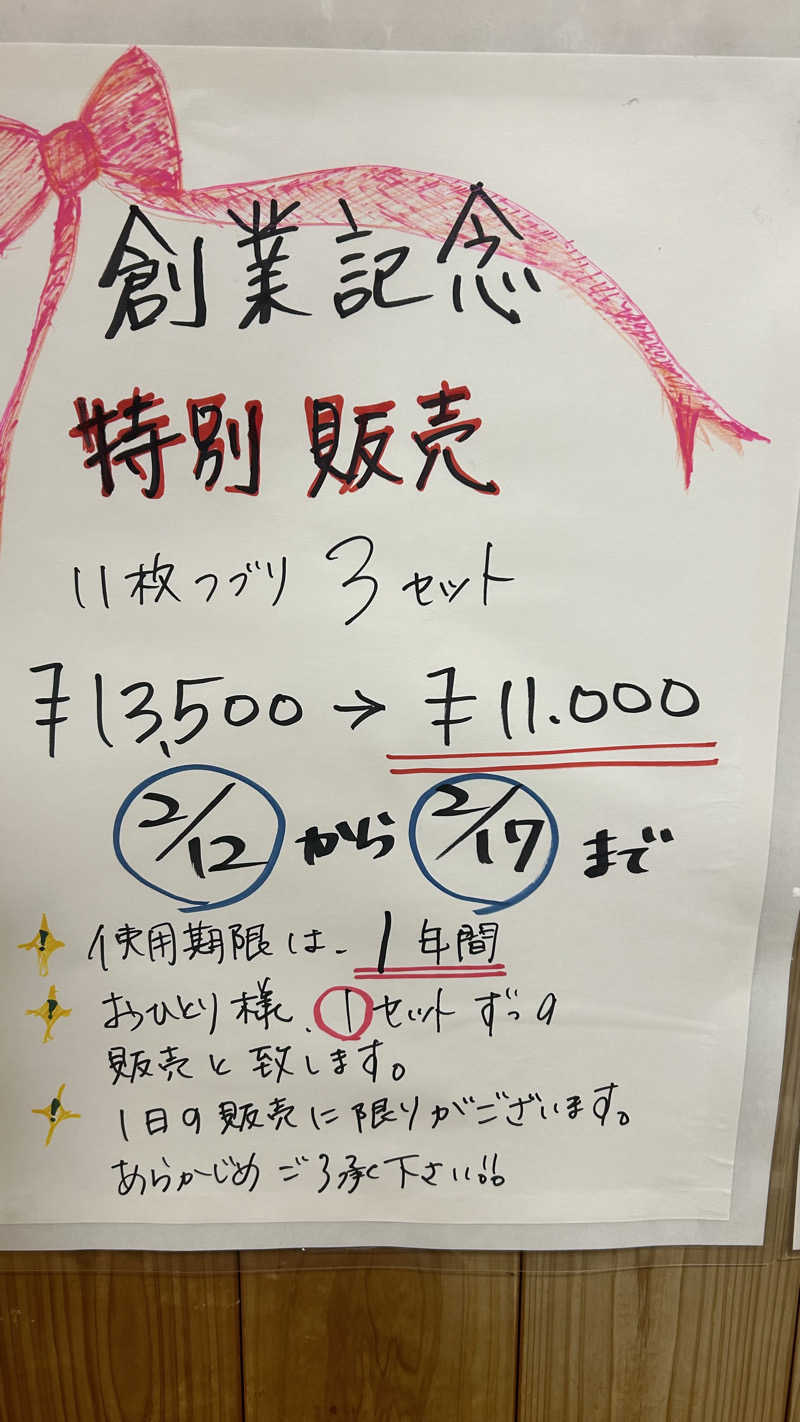 創業記念
特別販売
11枚つづり 3セット
¥13,500 → ¥11.000
2/12 から 2/17 まで
! 使用期限は、1年間
! おひとり様、1セットずつの
販売と致します。
! 1日の販売に限りがございます。
あらかじめご了承下さい!!